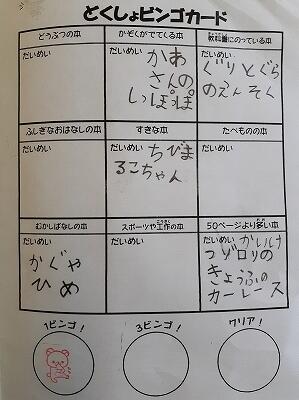 どくしょビンゴカード
どうぶつの本
だいめい
かぞくがでてくる本
だいめい かあ
さんの
いっぽっぽ
教科書にのっている本
だいめい
ぐりとぐら
のえんそく
ふしぎなおはなしの本
だいめい
すきな本
だいめい ちびま
るこちゃん
たべものの本
だいめい
むかしばなしの本
だいめい
かぐや
ひめ
スポーツや工作の本
だいめい
50ページより多い本
だいめい かいけ
つゾロリの
きょうふの
カーレース
1ビンゴ!
3ビンゴ!
クリア!